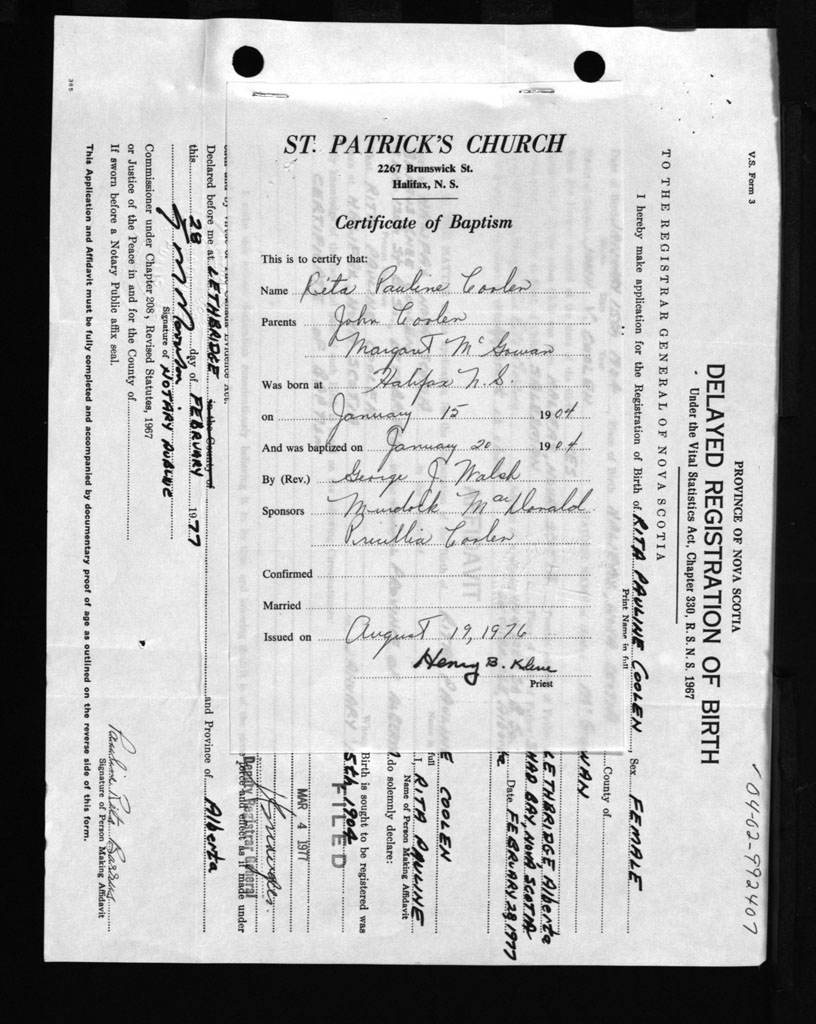 ST. PATRICK'S CHURCH
2267 Brunswick St.
Halifax, N. S.
Certificate of Baptism
This is to certify that:
Name Rita Pauline Coolen
Parents John Coolen
Margaret McGowan
Was born at Halifax N.S.
on January 15 1904
And was baptized on January 20 1904
By (Rev.) George J. Walsh
Sponsors Murdock MacDonald
Precillia Coolen
Confirmed
Married
Issued on August 19, 1976
Henry B. Kline
Priest
V.S. Form 3
04-02-992407
PROVINCE OF NOVA SCOTIA
DELAYED REGISTRATION OF BIRTH
Under the Vital Statistics Act, Chapter 330, R.S.N.S. 1967
TO THE REGISTRAR GENERAL OF NOVA SCOTIA
I hereby make application for the Registration of Birth of RITA PAULINE COOLEN, Sex FEMALE
Print Name in full
County of
WAN
LETHBRIDGE, Alberta
BAY, NOVA SCOTIA
Date FEBRUARY 28, 1977
E COOLEN
full
I, RITA PAULINE
Name of Person Making Affidavit
do solemnly declare:
Birth is sought to be registered was
5th 1904
FILED
MAR 4 1977
Deputy Registrar General
force and effect as if made under
Declared before me at LETHBRIDGE in the County of and Province of Alberta
this 28 day of FEBRUARY 1977
Signature of NOTARY PUBLIC
Commissioner under Chapter 208, Revised Statutes, 1967
or Justice of the Peace in and for the County of
If sworn before a Notary Public affix seal.
Pauline Rita
Signature of Person Making Affidavit
This Application and Affidavit must be fully completed and accompanied by documentary proof of age as outlined on the reverse side of this form.
385